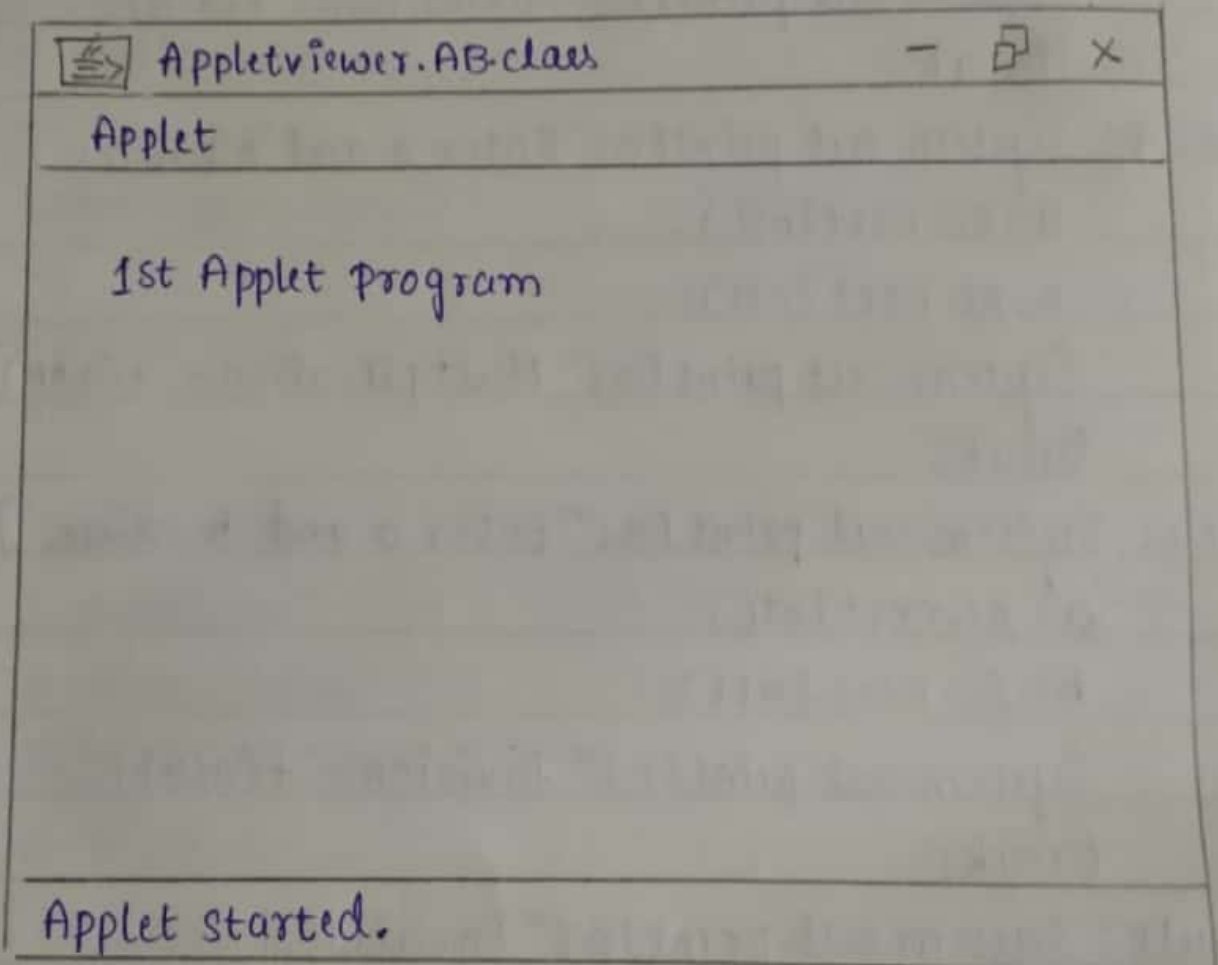 Appletviewer.AB.class
Applet
1st Applet program
Applet started.